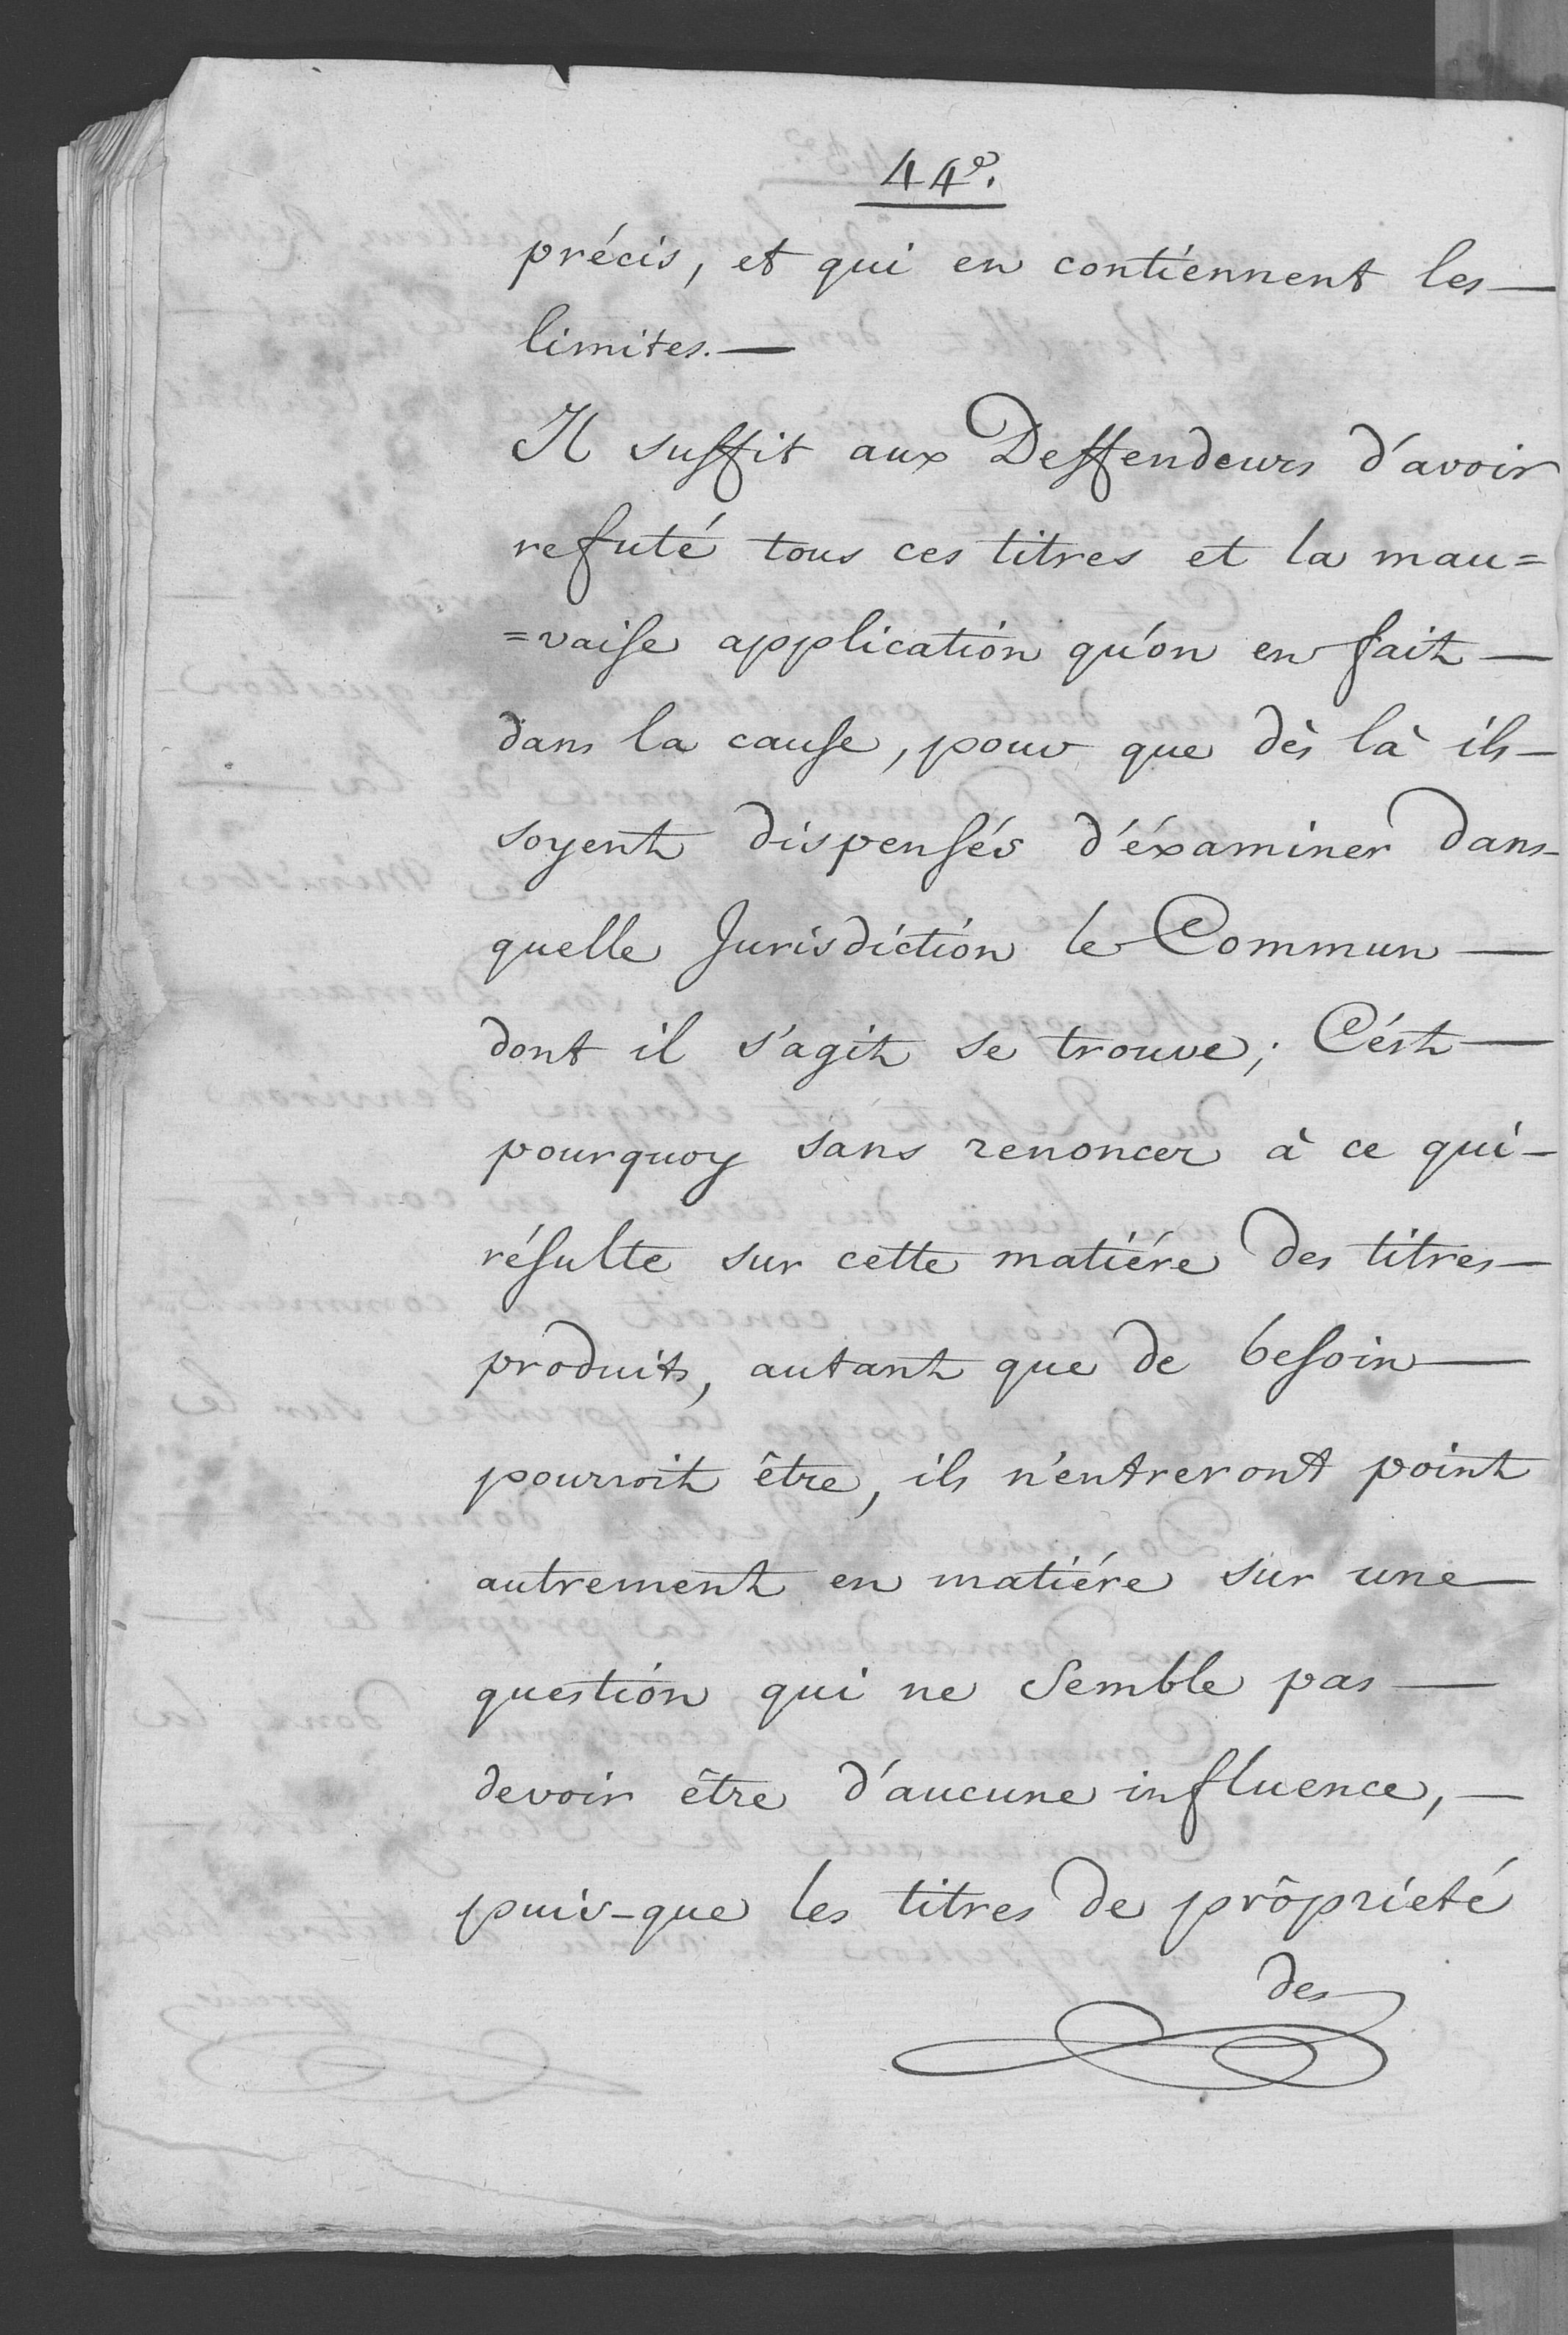 44e.
précis, et qui en contiennent les —
limites. —
Il suffit aux Deffendeurs d'avoir
refuté tous ces titres et la mau=
=vaise application qu'on en fait —
dans la cause, pour que dès là ils —
soyent dispensés d'éxaminer dans —
quelle Jurisdiction le Commun —
dont il s'agit se trouve; C'ést —
pourquoy sans renoncer à ce qui —
résulte sur cette matiére des titres —
produits, autant que de besoin —
pourroit être, ils n'entreront point
autrement en matiére sur une —
question qui ne semble pas —
devoir être d'aucune influence, —
puis-que les titres de prôprieté
des